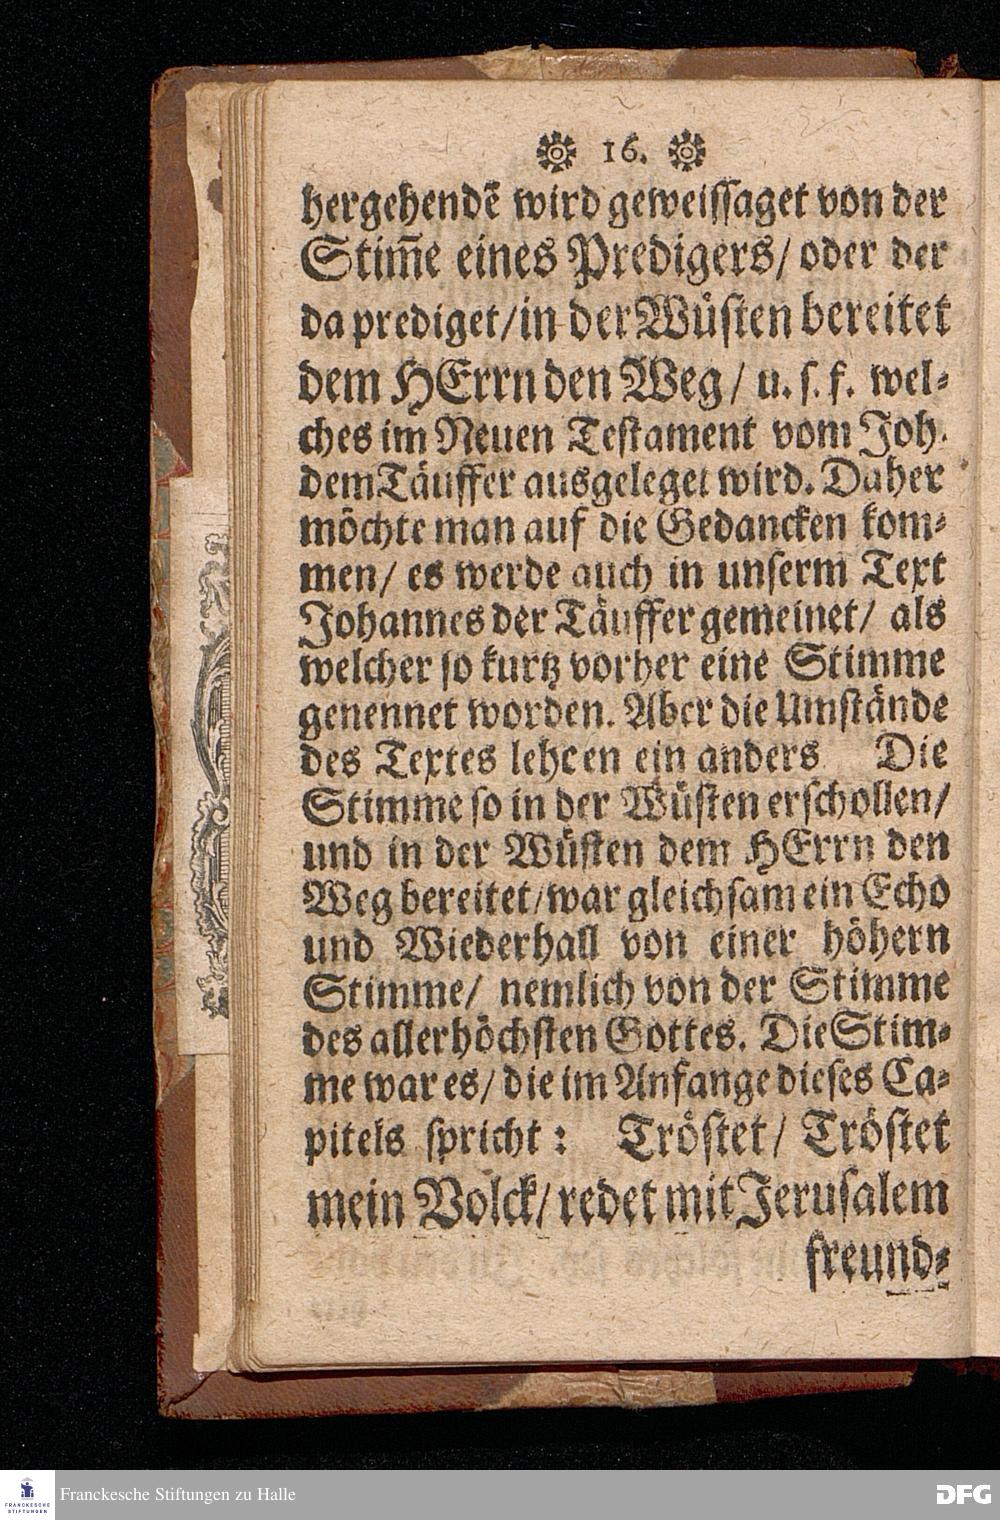 ❁ 16. ❁
hergehendẽ wird geweissaget von der
Stim̃e eines Predigers/ oder der
da prediget/in der Wüsten bereitet
dem HErrn den Weg/ u. s. f. wel-
ches im Neuen Testament vom Joh.
dem Täuffer ausgeleget wird. Daher
möchte man auf die Gedancken kom-
men/ es werde auch in unserm Text
Johannes der Täuffer gemeinet/ als
welcher so kurtz vorher eine Stimme
genennet worden. Aber die Umstände
des Textes lehren ein anders Die
Stimme so in der Wüsten erschollen/
und in der Wüsten dem HErrn den
Weg bereitet/war gleichsam ein Echo
und Wiederhall von einer höhern
Stimme/ nemlich von der Stimme
des allerhöchsten Gottes. Die Stim-
me war es/ die im Anfange dieses Ca-
pitels spricht: Tröstet/ Tröstet
mein Volck/ redet mit Jerusalem
freund-
FRANCKESCHE
STIFTUNGEN
Franckesche Stiftungen zu Halle
DFG